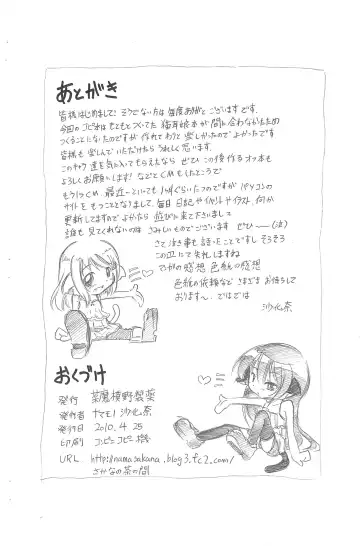 あとがき
皆様はじめまして! そうでない方は毎度ありがとうございますです。
今回のコピ本はもともとつくってた猫耳娘本が間に合わなかったため
つくることになったのですが 作れてわりと楽しかったのでよかったです
皆様も楽しんでいただけたらうれしく思います。
このキャラ達を気に入ってもらえたなら ぜひ この後作るオフ本も
よろしくお願いします! などとCMもしたところで
もうけっこ 最近 といっても 1ヶ月くらいたつのですが パソコンの
サイトをもつこととなりまして、毎日 日記やイラット
更新してますのでよかったら 遊びに来て下さいまし
誰も見てくれないのは さみしいものでございます ぜひ〜(泣)
さて 泣き事も 言ったことですし そろそろ
この辺にて失礼しますね
でわわ感想、色紙の感想
色紙の依頼など さまざま お待ちして
おります〜、ではでは
沙化奈
おくづけ
発行
発行者 ヤマモノ 沙化奈
発行日 2010.4.25
印刷 コンビニコピー機
URL http://namasakana.blog3.fc2.com/
さかなの茶の間